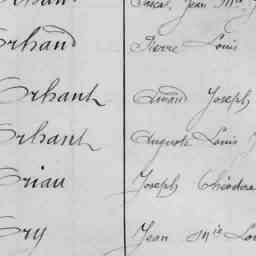 Pascal, Jean Mie
Orhand Pierre Louis
Orhant Amand Joseph
Orhant Auguste Louis
Oriau Joseph Théodore
Ory Jean Mie Lou